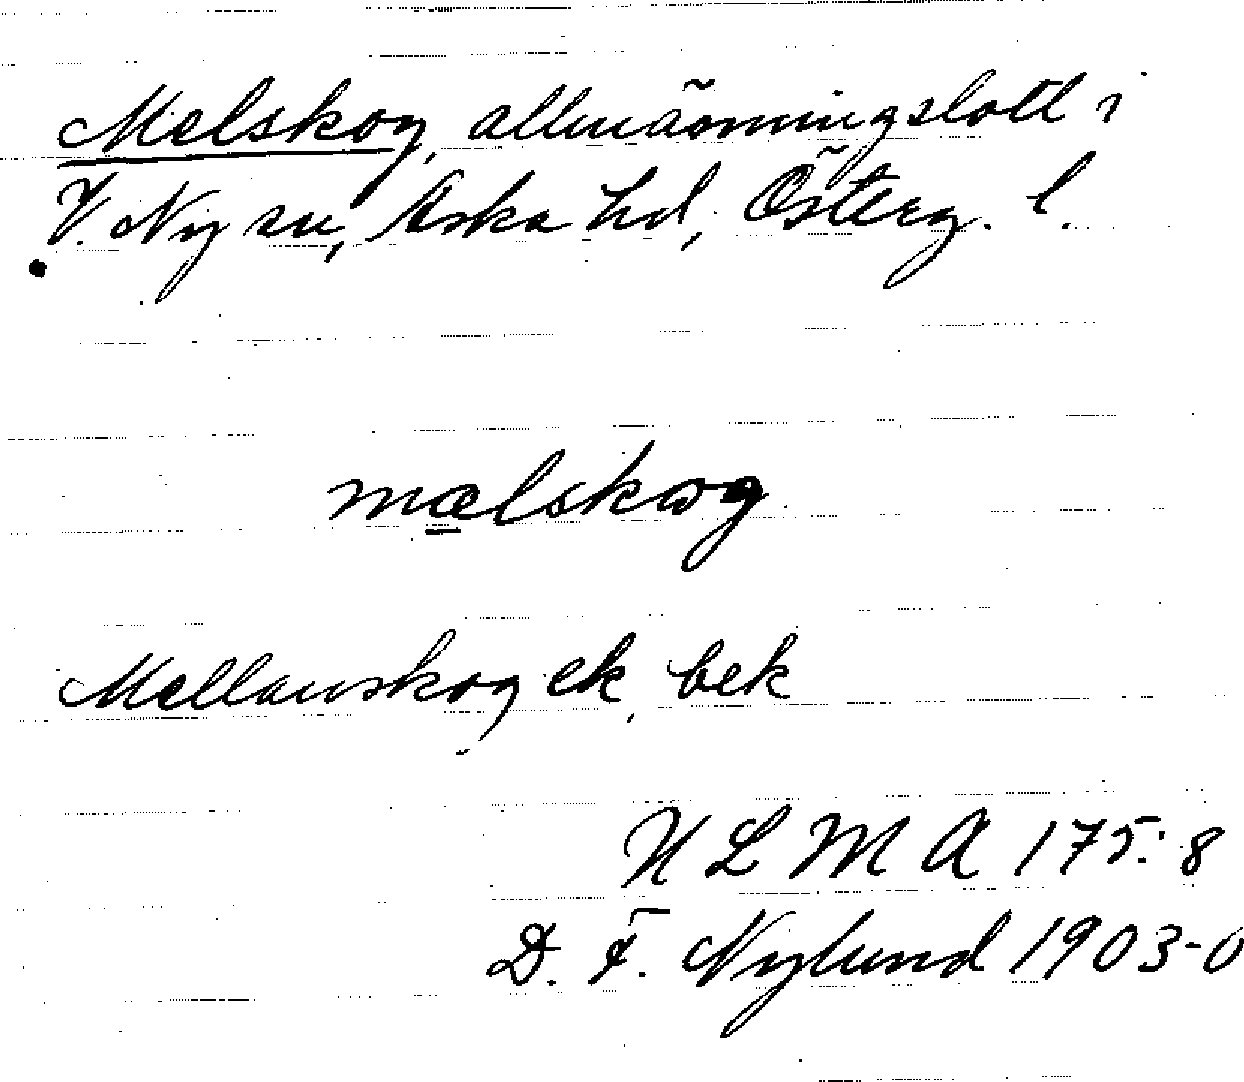 Melskog, allmänningslott i
V. Ny sn, Aska hd, Österg. l.
mælskog
Mellanskog ek, bek
ULMA 175:8
D. F. Nylund 1903-0